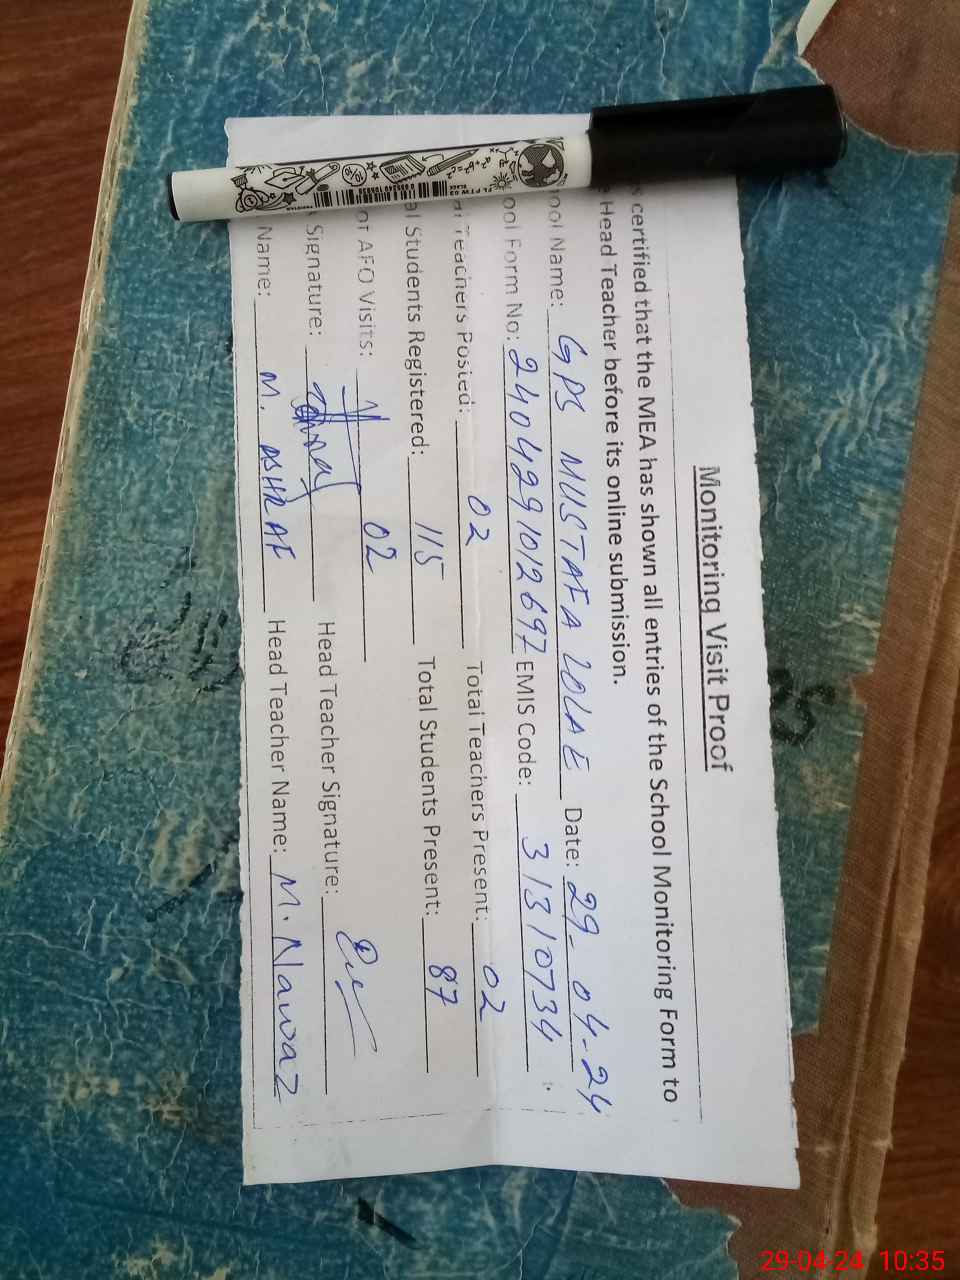 Monitoring Visit Proof
s certified that the MEA has shown all entries of the School Monitoring Form to
Head Teacher before its online submission.
ool Name: GPS MUSTAFA LOLAE Date: 29-04-24
ool Form No: 2404291012697 EMIS Code: 31310734
Teachers Posted: 02 Total Teachers Present: 02
al Students Registered: 115 Total Students Present: 87
or AFO Visits: 02
Signature: Head Teacher Signature:
Name: M. ASHRAF Head Teacher Name: M. Nawaz
29-04-24 10:35